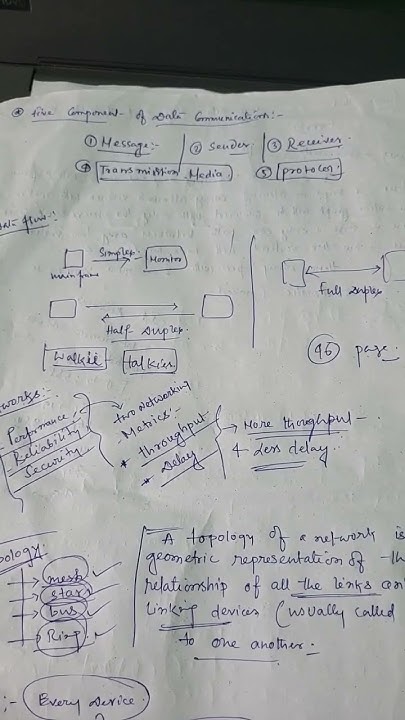 Five Component of Data Communication:-
① Message:- ② Sender ③ Receiver
④ Transmission Media ⑤ Protocol
Data flow:-
Simplex
main frame
Monitor
Full Duplex
Half Duplex
Walkie Talkies
46 page
works:-
Performance
Reliability
Security
two Networking
Metrics:-
* throughput
* Delay
More throughput
& Less delay
pology:
mesh
star
bus
Ring
A topology of a network is
geometric representation of the
relationship of all the links
linking devices (usually called
to one another:-
:- Every Device